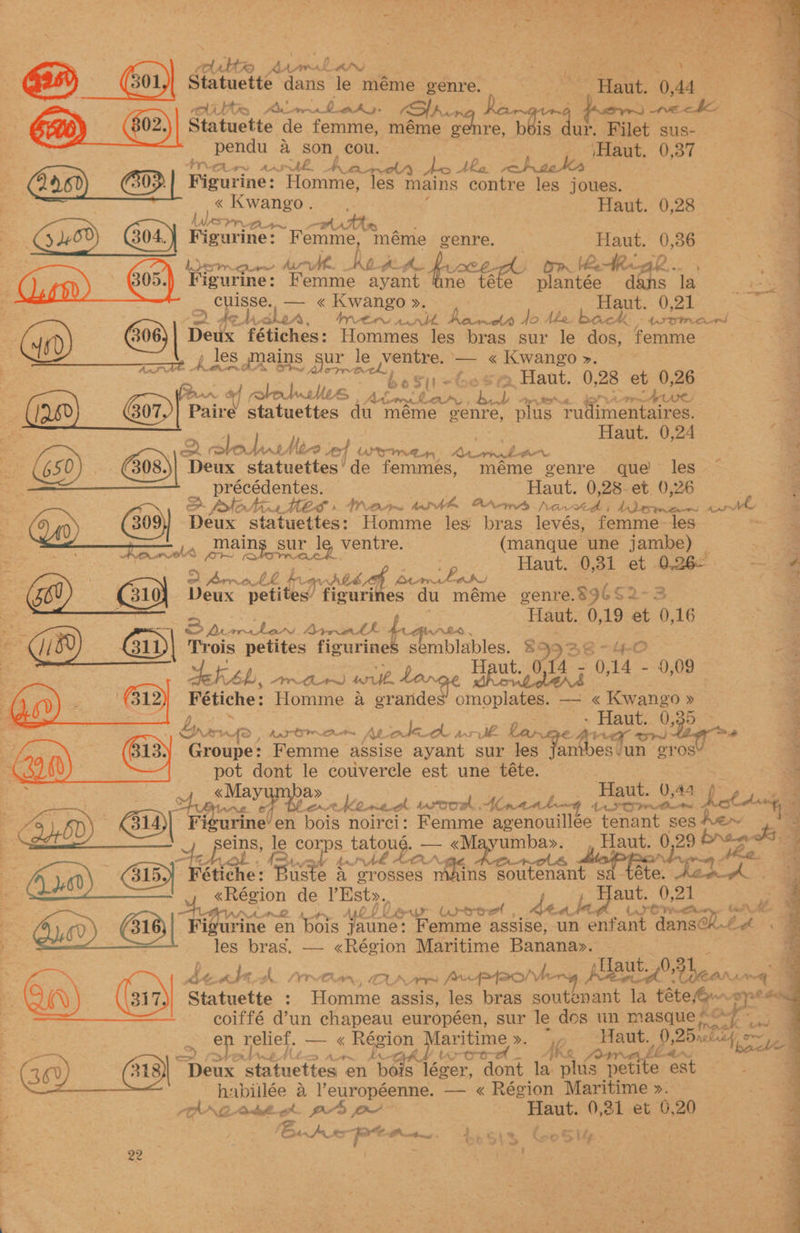 ditto similar
250 301. Statuette dans le même genre. Haut. 0,44
ditto similar. String hanging from neck
500 302. Statuette de femme, même genre, bois dur. Filet sus-
pendu à son cou. Haut. 0,37
man with hands to the cheeks
303. Figurine: Homme, les mains contre les joues.
« Kwango. Haut. 0,28
Woman ditto
304. Figurine: Femme, même genre. Haut. 0,36
woman with head
305. Figurine: Femme ayant une tête plantée dans la
cuisse. — « Kwango ». Haut. 0,21
2 fetishes, men with hands to the back, woman
306. Deux fétiches: Hommes les bras sur le dos, femme
les mains sur le ventre. — « Kwango ».
with hands on stomach Haut. 0,28 et 0,26
Pair of statuettes similar, but more primitive
307. Paire statuettes du même genre, plus rudimentaires.
Haut. 0,24
2 statuettes of women, similar
650 308. Deux statuettes de femmes, même genre que les
précédentes. Haut. 0,28 et 0,26
2 statuettes. Man with arms raised, woman with
309. Deux statuettes: Homme les bras levés, femme les
mains sur le ventre. (manque une jambe)
hands on stomach Haut. 0,31 et 0,26
2 small figures similar
310. Deux petites figurines du même genre. 89652-3
Haut. 0,19 et 0,16
3 similar small figures.
311. Trois petites figurines semblables. 89938-40
Haut. 0,14 - 0,14 - 0,09
fetish, man with large shoulders
312. Fétiche: Homme à grandes omoplates. — « Kwango »
Haut. 0,35
Group, woman seated with large
313. Groupe: Femme assise ayant sur les jambes un gros
pot dont le couvercle est une tête.
«Mayumba» Haut. 0,44
Figurine of blackened wood. Kneeling woman holding
314. Figurine en bois noirci: Femme agenouillée tenant ses her
seins, le corps tatoué. — «Mayumba». Haut. 0,29 breasts
Fetish. Bust with large hands supporting the
315. Fétiche: Buste à grosses mains soutenant sa tête. head
«Région de l'Est». Haut. 0,21
Figurine in yellow wood, seated woman with
316. Figurine en bois jaune: Femme assise, un enfant dans child
les bras. — «Région Maritime Banana».
Haut. 0,31
seated man, arms supporting head wearing
317. Statuette : Homme assis, les bras soutenant la tête,
coiffé d'un chapeau européen, sur le dos un masque
en relief. — « Région Maritime ». Haut. 0,25
2 statuettes in light wood. the smaller
318. Deux statuettes en bois léger, dont la plus petite est
habillée à l'européenne. — « Région Maritime ».
Haut. 0,31 et 0,20
European
22